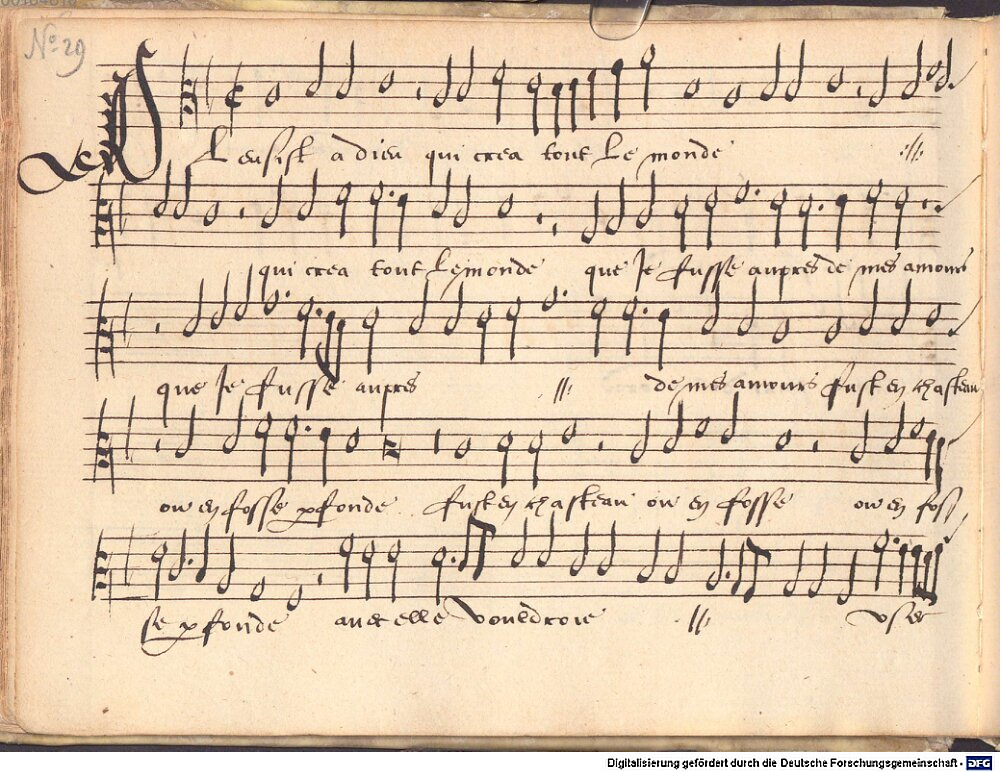 No 29
Pleusist a dieu qui crea tout le monde :||:
qui crea tout le monde que Je fusse aupres de mes amours
que Je fusse aupres || de mes amours fust en chasteau
ou en fosse pfonde fust en chasteau ou en fosse ou en fos
se pfonde auec elle vouldroie ·||· vser
Digitalisierung gefördert durch die Deutsche Forschungsgemeinschaft - DFG